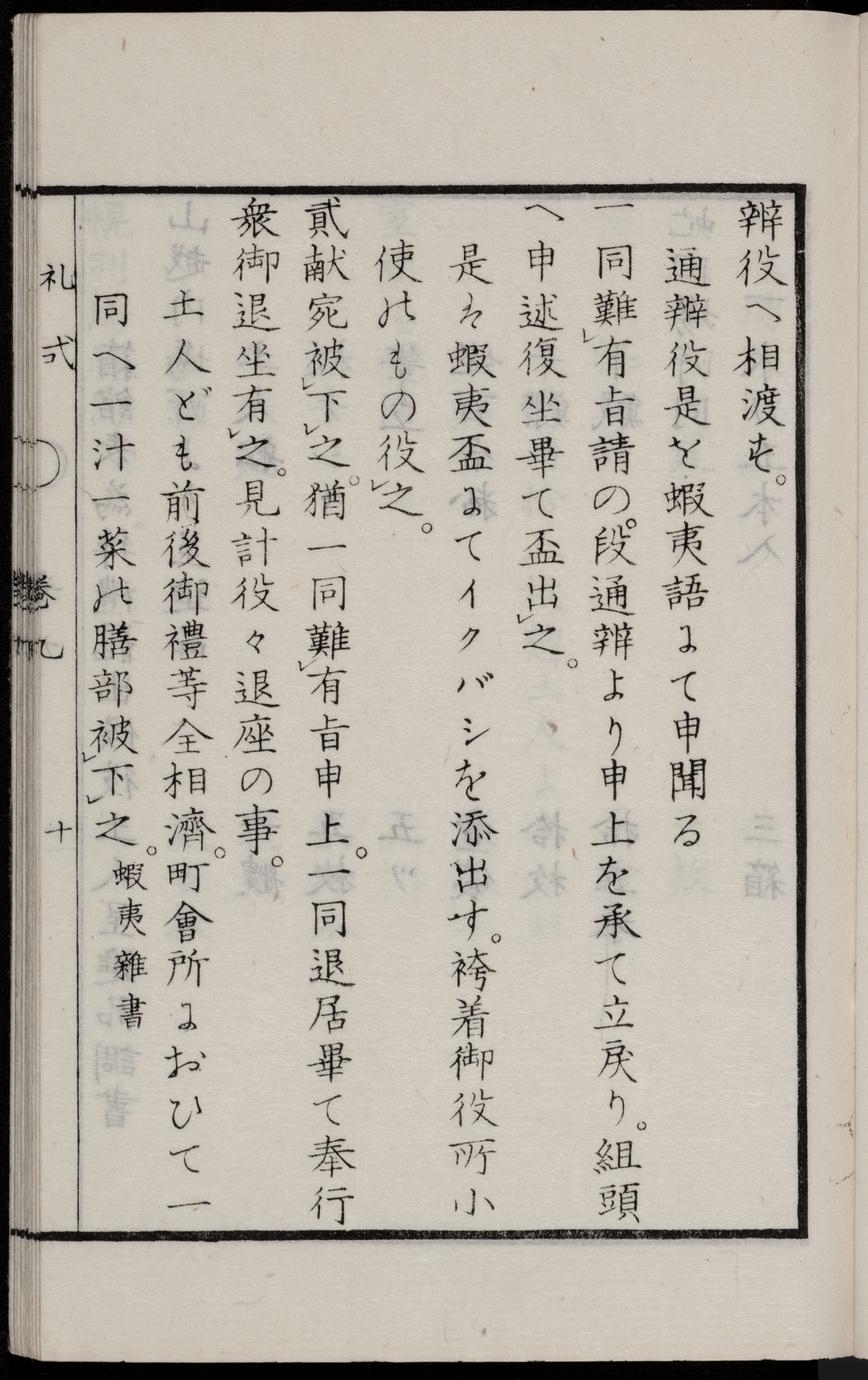 辨役へ相渡す。
通辨役是を蝦夷語にて申聞る
一同難レ有旨請の。段通辨より申上を承て立戻り。組頭
へ申述復坐畢て盃出レ之。
是は蝦夷盃にてイクバシを添出す。袴着御役所小
使のもの役レ之。
貳献宛被レ下レ之。猶一同難レ有旨申上。一同退居畢て奉行
衆御退坐有レ之。見計役々退座の事。
土人ども前後御禮等全相濟。町會所におひて一
同へ一汁一菜の膳部被レ下レ之。蝦夷雜書
礼式 卷九 十